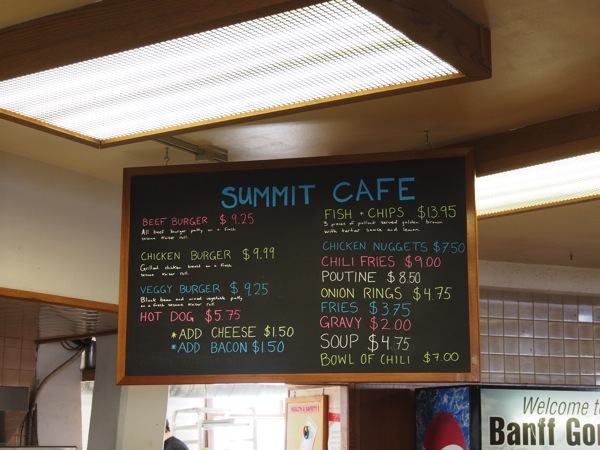 SUMMIT CAFE
BEEF BURGER $9.25
All beef burger patty on a fresh
sesame kaiser roll.
CHICKEN BURGER $9.99
Grilled chicken breast on a fresh
sesame kaiser roll.
VEGGY BURGER $9.25
Black bean and mixed vegetable patty
on a fresh sesame kaiser roll.
HOT DOG $5.75
*ADD CHEESE $1.50
*ADD BACON $1.50
FISH + CHIPS $13.95
3 pieces of pollock served golden brown
with tartar sauce and lemon
CHICKEN NUGGETS $7.50
CHILI FRIES $9.00
POUTINE $8.50
ONION RINGS $4.75
FRIES $3.75
GRAVY $2.00
SOUP $4.75
BOWL OF CHILI $7.00
HEALTH & SAFETY
Welcome to
Banff Gon